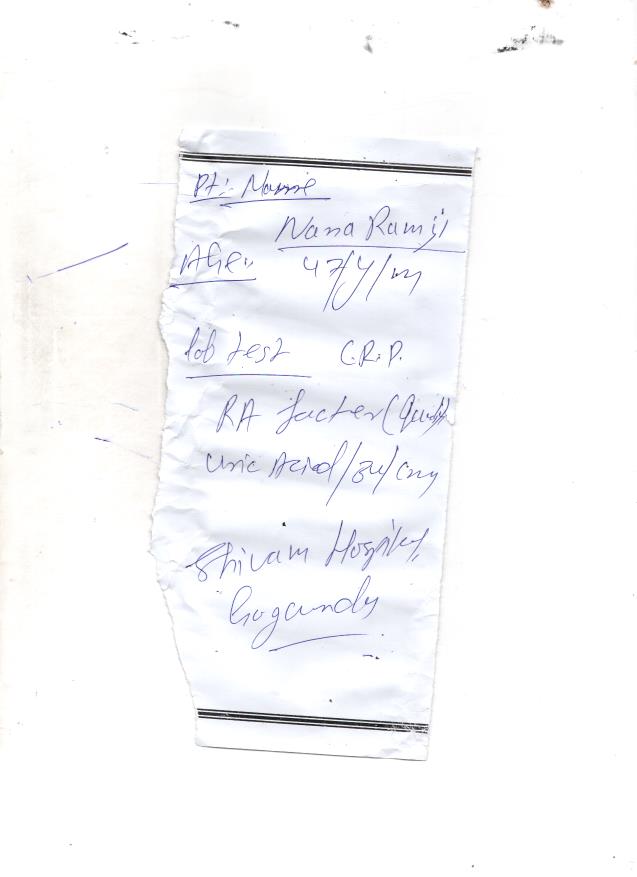 Pt:- Name
Nana Ramji
Age:- 47/Y/m
lob test C.R.P.
RA facter (
Uric Acid /
Shivam Hospital,
Gogunda